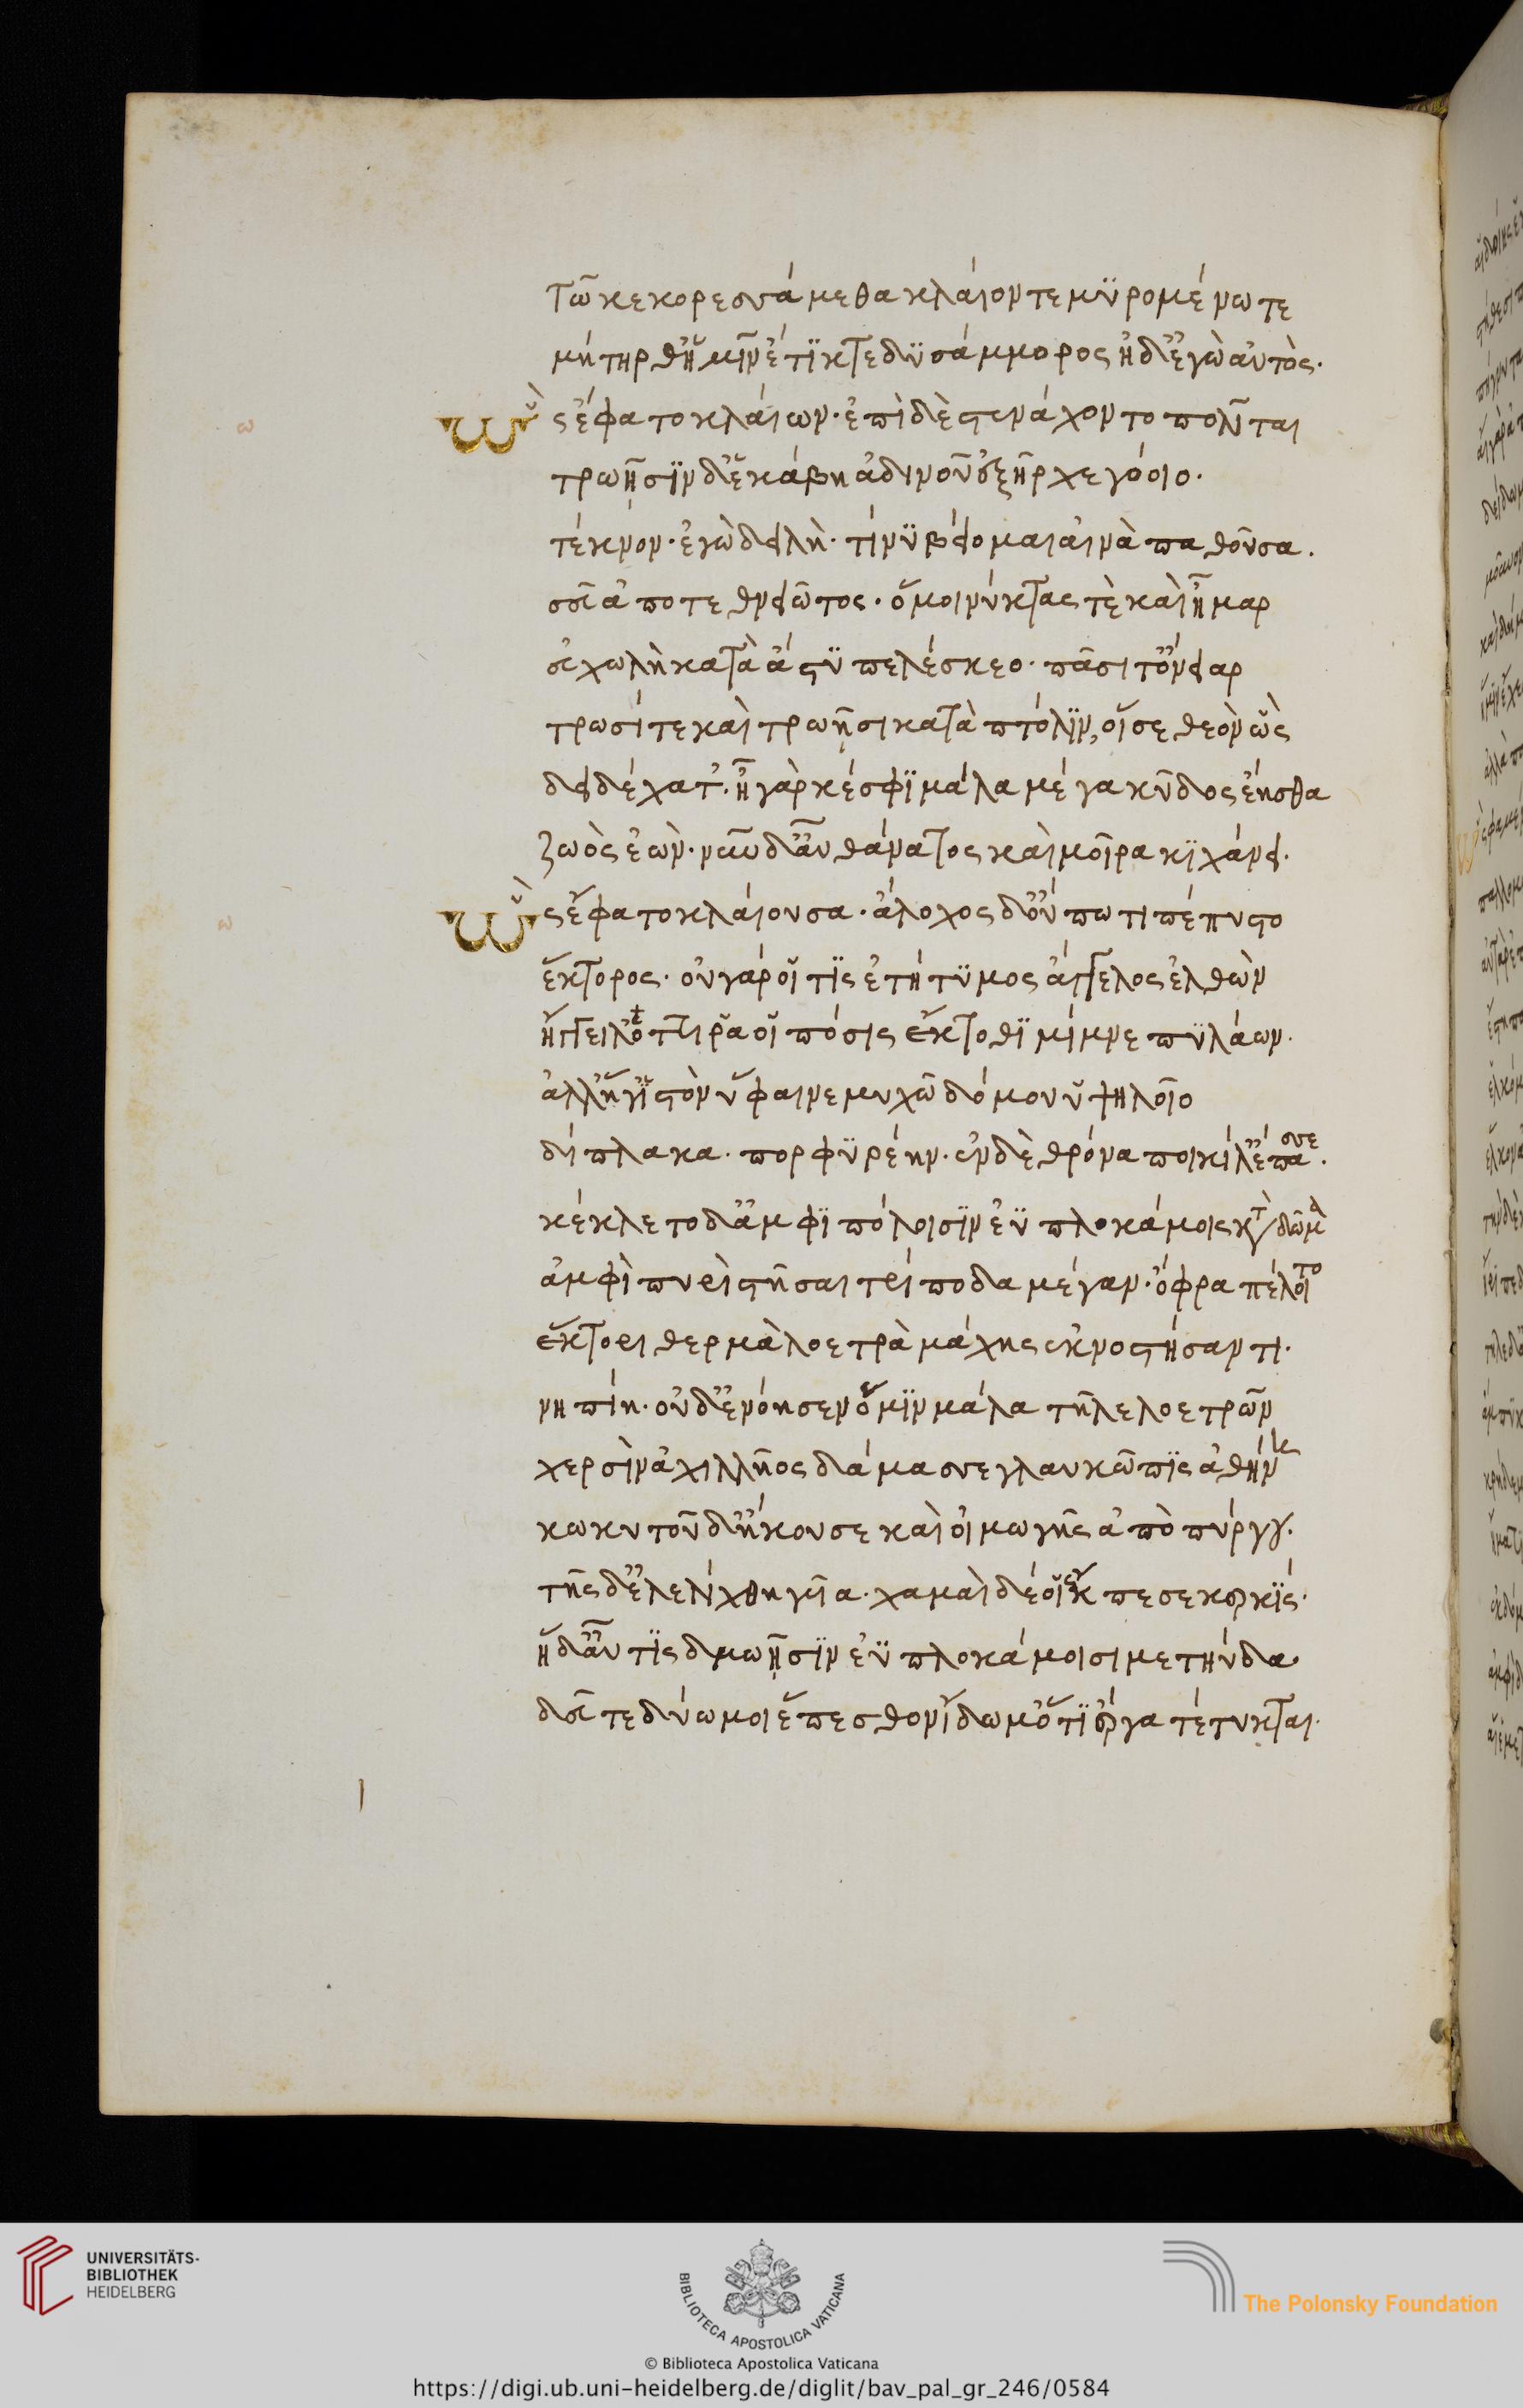 τῶ κε κορεσσάμεθα κλαίοντε μϋρομένω τε
μήτηρ θ' ἥ μιν ἔτϊκτε δϋσάμμορος ἠδ' ἐγὼ αὐτὸς.
Ὣς ἔφατο κλαίων· ἐπὶ δὲ στενάχοντο πολῖται
τρωῆσϊν δ' ἑκάβη ἁδινοῦ ἐξῆρχε γόοιο.
τέκνον· ἐγὼ δειλὴ· τί νϋ βείομαι αἰνὰ παθοῦσα.
σεῦ ἀποτεθνειῶτος· ὅ μοι νύκτας τὲ καὶ ἦμαρ
εὐχωλὴ κατὰ ἄστϋ πελέσκεο· πᾶσι τ' ὄνειαρ
τρωσί τε καὶ τρωῇσι κατὰ πτόλϊν, οἵ σε θεὸν ὣς
δειδέχατ'. ἦ γὰρ κέ σφϊ μάλα μέγα κῦδος ἔησθα
ζωὸς ἐὼν· νῦν δ' αὖ θάνατος καὶ μοῖρα κϊχάνει.
Ὣς ἔφατο κλαίουσα· ἄλοχος δ' οὔπω τι πέπυστο
ἕκτορος· οὐ γάρ οἵ τϊς ἐτήτϋμος ἄγγελος ἐλθὼν
ἤγγειλ' ὅττι ῥά οἱ πόσις ἔκτοθϊ μίμνε πϋλάων.
ἀλλ' ἥ γ' ἱστὸν ὕφαινε μυχῶ δόμου ὑψηλοῖο
δίπλακα· πορφϋρέην· ἐν δὲ θρόνα ποικίλ' ἔπασσε.
κέκλετο δ' ἀμφϊπόλοισϊν ἐϋπλοκάμοις κατὰ δῶμα
ἀμφὶ πυρὶ στῆσαι τρίποδα μέγαν· ὄφρα πέλοιτο
ἕκτορι θερμὰ λοετρὰ μάχης ἐκνοστήσαντι.
νηπίη· οὐδ' ἐνόησεν ὅ μϊν μάλα τῆλε λοετρῶν
χερσὶν ἀχιλλῆος δάμασε γλαυκῶπϊς ἀθήνη
κωκυτοῦ δ' ἤκουσε καὶ οἰμωγῆς ἀπὸ πύργου.
τῆς δ' ἐλελίχθη γυῖα· χαμαὶ δέ οἱ ἔκπεσε κερκϊς.
ἡ δ' αὖτϊς δμωῇσϊν ἐϋπλοκάμοισι μετηύδα
δεῦτε δύω μοι ἕπεσθον ἴδωμ' ὅτϊν' ἔργα τέτυκται.
UNIVERSITÄTS-
BIBLIOTHEK
HEIDELBERG
BIBLIOTECA APOSTOLICA VATICANA
The Polonsky Foundation
© Biblioteca Apostolica Vaticana
https://digi.ub.uni-heidelberg.de/diglit/bav_pal_gr_246/0584